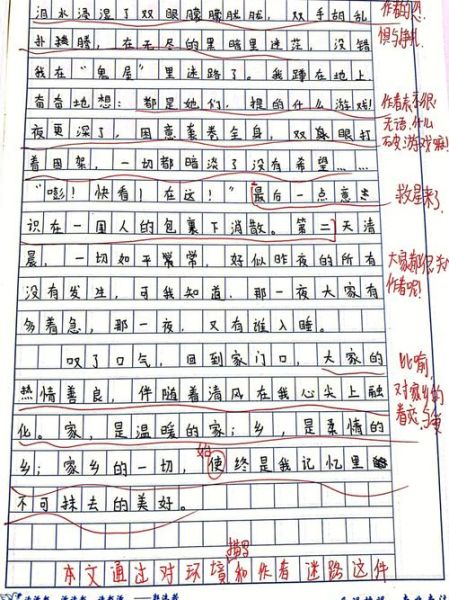 泪水浸湿了双眼朦朦胧胧，双手胡乱
扑腾，在无尽的黑暗里迷茫，没错
我在“鬼屋”里迷路了。我蹲在地上，
奋奋地想：都是她们，提的什么游戏！
夜更深了，困意袭卷全身，双眼打
着困架，一切都暗淡了没有希望……
“嘭！快看！在这！”最后一点意志
识在一围人的包裹下消散。第二天清
晨，一切如平常常，好似昨夜的所有
没有发生，可我知道，那一夜大家有
多着急，那一夜，又有谁入睡。
叹了口气，回到家门口，大家的
热情善良，伴随着清风在我心尖上融
化。家，是温暖的家；乡，是柔情的
乡；家乡的一切，使终是我记忆里
不可抹去的美好。
始
描写
本文通过对环境和作者迷路这件
作者的恐
惧与挣扎
作者表示很
无语，什么
救星来了
大家都很关心
作者呢！
比喻，
对家乡的